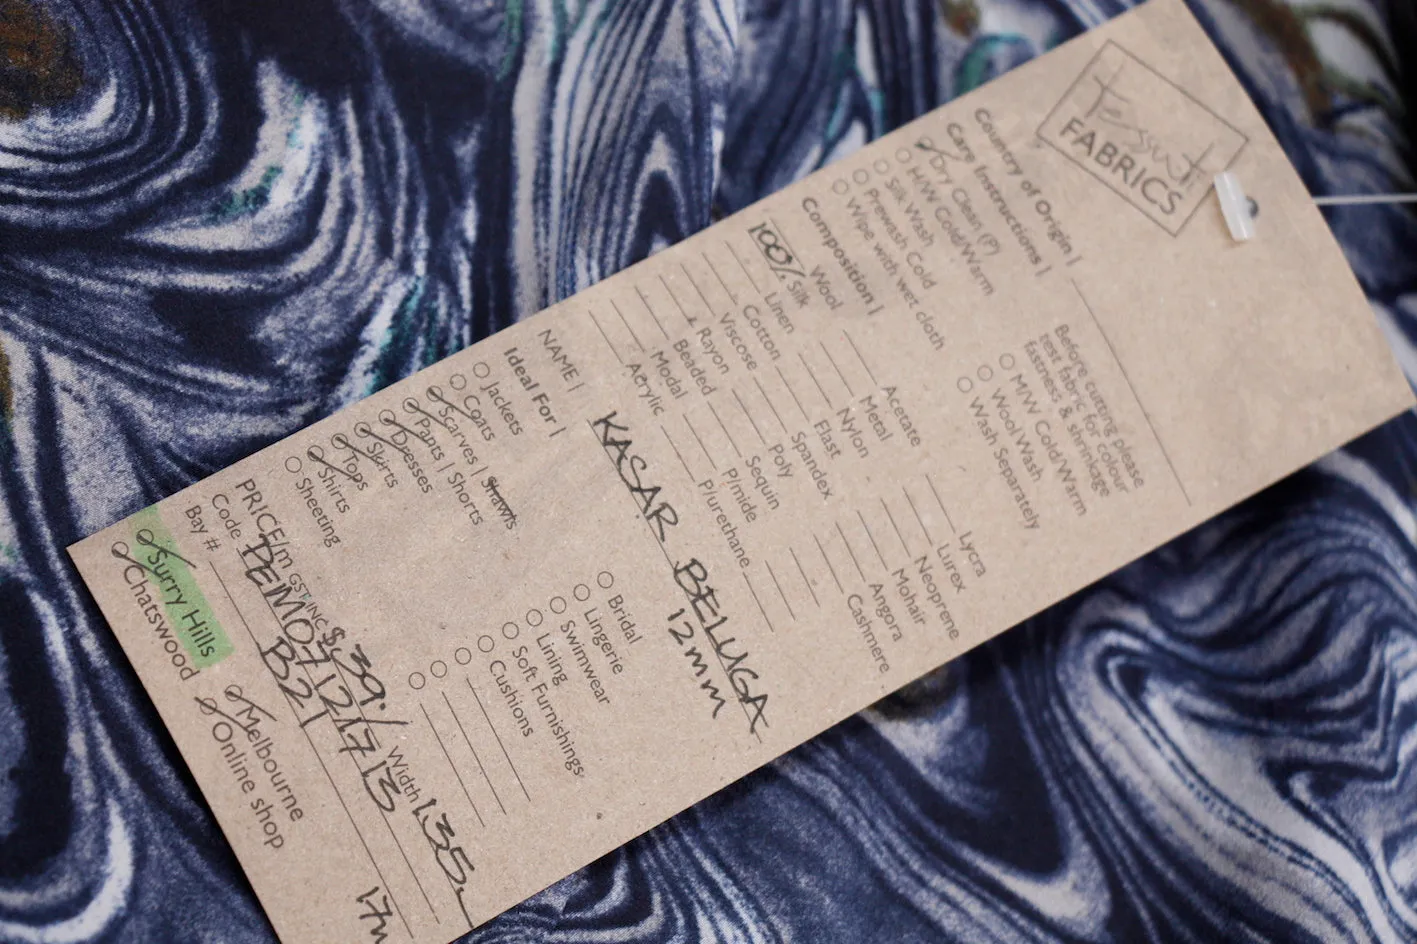 Tessuti
FABRICS
Country of Origin |
Care Instructions |
Dry Clean (P)
H/W Cold/Warm
Silk Wash
Prewash Cold
Wipe with wet cloth
Before cutting please
test fabric for colour
fastness & shrinkage
M/W Cold/Warm
Wool Wash
Wash Separately
Composition |
Wool
100% Silk
Linen
Cotton
Viscose
Rayon
Beaded
Modal
Acrylic
Acetate
Metal
Nylon
Elast
Spandex
Poly
Sequin
P/mide
P/urethane
Lycra
Lurex
Neoprene
Mohair
Angora
Cashmere
NAME | KASAR BELUGA
12mm
Ideal For |
Jackets
Coats
Scarves | Shawls
Pants | Shorts
Dresses
Skirts
Tops
Shirts
Sheeting
Bridal
Lingerie
Swimwear
Lining
Soft Furnishings
Cushions
PRICE/m GST INC $39./ Width 1.35m
Code DEMO.7121713
Bay # B21 17m
Surry Hills
Chatswood
Melbourne
Online shop